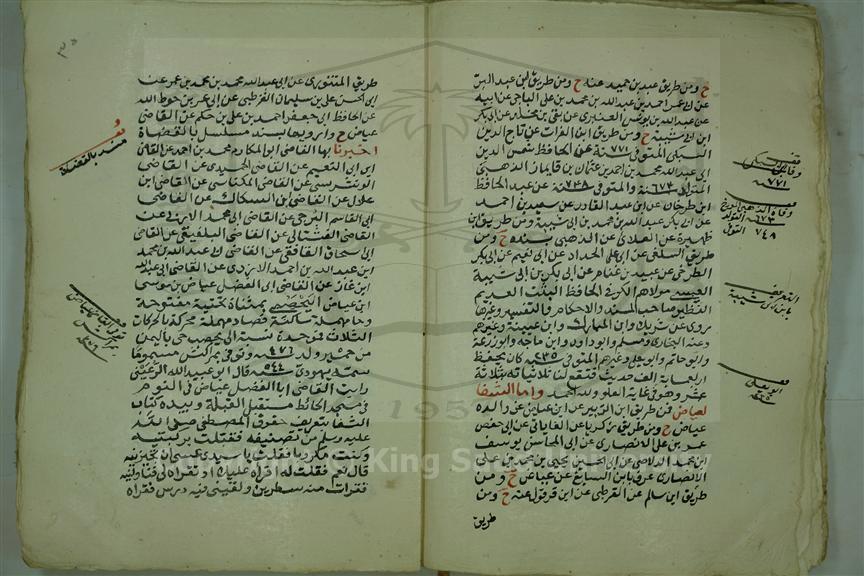 ح ومن طريق عبد بن حميد عنه ح ومن طريق ابن عبد البر
عن ابي عمر احمد بن عبد الله بن محمد بن علي الباجي عن ابيه
عن عبد الله بن يونس عن بقي بن مخلد عن ابي بكر
ابن ابي شيبة ح ومن طريق ابن الفرات عن تاج الدين
السبكي المتوفى ٧٧١ سنة عن الحافظ شمس الدين
ابي عبد الله محمد بن احمد بن عثمان بن قايماز الذهبي
المتولد ٦٧٣ والمتوفى ٧٤٨ عن عبد الحافظ
ابن طرخان عن ابن عبد القادر عن سعيد بن احمد
عن ابي بكر عبد الله بن محمد بن ابي شيبة ومن طريق ابن
ظهيرة عن العلائي عن الذهبي بسنده ح ومن
طريق السلفي عن ابي علي الحداد عن ابي نعيم عن ابي بكر
الطلحي عن عبيد بن غنام عن ابي بكر بن ابي شيبة
العبسي مولاهم الكوفي الحافظ الثبت العديم
النظير صاحب المسند والاحكام والتفسير وغيرها
يروي عن شريك وابن المبارك وابن عيينة وغيرهم
وعنه البخاري ومسلم وابو داود وابن ماجه وابو زرعة
وابو حاتم وابو يعلى وغيرهم المتوفى سنة ٢٣٥ كان يحفظ
عشر وهو في غاية العلو ولله الحمد واما الشفا
لعياض فمن طريق ابن الزبير عن ابن عياض عن والده
عياض ح ومن طريق زكريا عن القاياتي عن ابي حفص
عمر بن علي الانصاري عن ابي المحاسن يوسف
بن محمد الدلاصي عن ابي الحسين يحيى بن محمد بن علي
الانصاري عرف بابن الصايغ عن عياض ح ومن
طريق ابن سالم عن القرطبي عن ابن قرقول عنه ح ومن
طريق
٧٧١
٦٧٣
٧٤٨
التعريف
بابن ابي شيبة
ابو يعلى
طريق المنتوري عن ابي عبد الله محمد بن محمد بن عمر عن
ابي الحسن علي بن سليمان القرطبي عن ابي عمر بن حوط الله
عن الحافظ ابي جعفر احمد بن علي بن حكم عن القاضي
عياض ح وارويها بسند مسلسل بالقضاة
اخبرنا بها القاضي ابو المكارم محمد بن احمد عن القاضي
ابن ابي النعيم عن القاضي الحميدي عن القاضي
الونشريسي عن القاضي المكناسي عن القاضي ابن
علال عن القاضي ابن السكاك عن القاضي
ابي القاسم البرجي عن القاضي محمد
القاضي الفشتالي عن القاضي البلفيقي عن القاضي
ابي اسحاق الغافقي عن القاضي ابي عبد الله محمد
ابن عبد الله بن احمد الازدي عن القاضي ابي عبد الله
ابن غاز عن القاضي ابي الفضل عياض بن موسى
ابن عياض اليحصبي بمثناة تحتية مفتوحة
وحا مهملة ساكنة فصاد مهملة محركة بالحركات
الثلاث فموحدة نسبة الى يحصب حي باليمن
من حمير ولد ٤٧٦ سنة وتوفي بمراكش مسموما
سمه يهودي ٥٤٤ سنة قال ابو عبد الله الرعيني
رايت القاضي ابا الفضل عياض في النوم
في مسجد الحائط مستقبل القبلة وبيده كتاب
الشفا بتعريف حقوق المصطفى صلى الله
عليه وسلم من تصنيفه فقبلت بركبتيه
وكنت مكروبا فقلت يا سيدي عسى ان تجيزنيه
قال نعم فقلت له اقراه عليك او تقراه لي فناولنيه
فقرات منه سطرين ولقيني فيه درس فقراه
سند بالقضاة